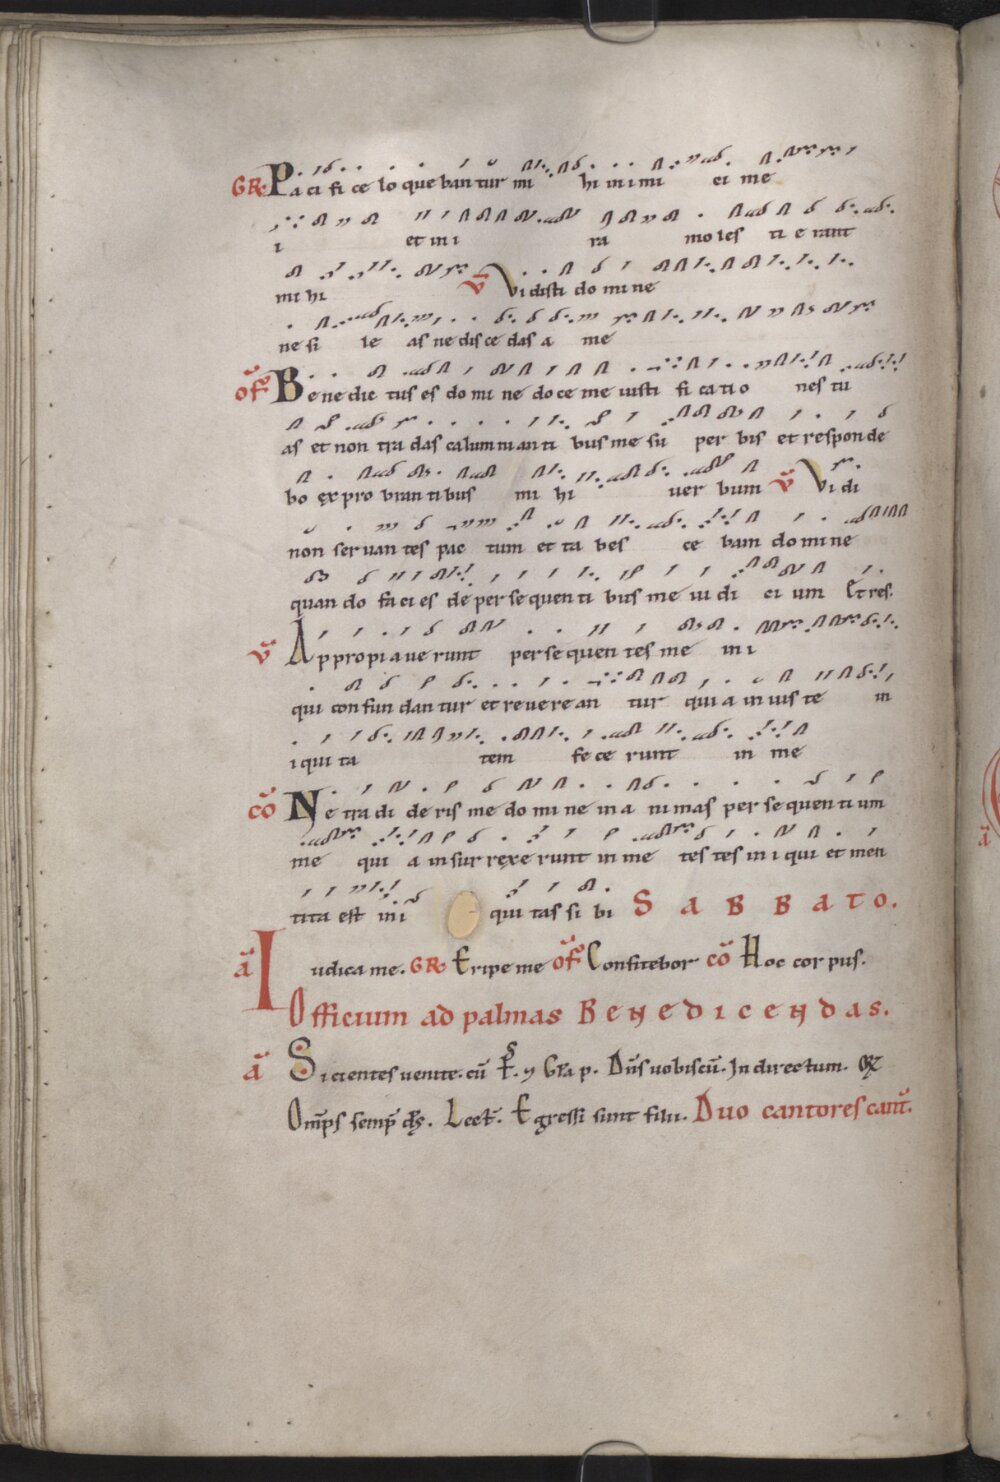 GR. Pa ci fi ce lo que ban tur mi hi in i mi ci me
i et in i ra mo les ti e rant
mi hi V̄ Vi disti do mi ne
ne si le as ne dis ce das a me
OF̄ Be ne dic tus es do mi ne do ce me iusti fi ca ti o nes tu
as et non tra das calum ni an ti bus me su per bis et respon de
bo ex pro bran ti bus mi hi uer bum V̄ Vi di
non ser uan tes pac tum et ta bes ce bam do mi ne
quan do fa ci es de per se quen ti bus me iu di ci um Et res.
V̄ Ap pro pi a ue runt per se quen tes me in i
qui con fun dan tur et re ue re an tur qui a in ius te in
i qui ta tem fe ce runt in me
CŌ Ne tra di de ris me do mi ne in a ni mas per se quen ti um
me qui a in sur rexe runt in me tes tes in i qui et men
tita est in i qui tas si bi SABBATO.
ā Iudica me. GR. Eripe me OF̄ Confitebor CŌ Hoc corpus.
Officium ad palmas BENEDICENDAS.
ā Sicientes uenite. cū
Dn̄s uobiscū. In directum.
Om̄ps semp̄ ds. Lect̄. Egressi sunt filii. Duo cantores cant̄.